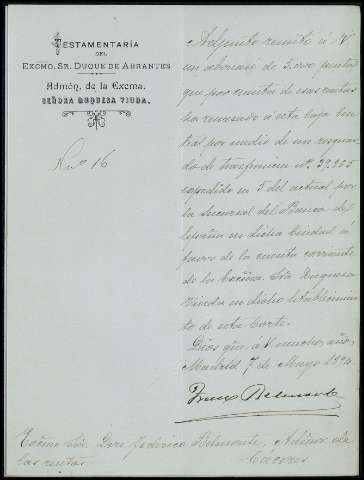 TESTAMENTARÍA
DEL
EXCMO. SR. DUQUE DE ABRANTES
Admón. de la Excma.
SEÑORA DUQUESA VIUDA.
Nº 16
Adjunto remito á V.
un abonaré de 5.000 pesetas
que por cuenta de esas rentas
ha remesado á esta Caja Cen
tral por medio de un resguar
do de trasferencia Nº
expedido en 5 del actual por
la Sucursal del Banco de
España en dicha Ciudad á
favor de la cuenta corriente
de la Excma. Sra. Duquesa
Viuda en dicho establecimien
to de esta Corte.
Dios gue. á V. muchos años.
Madrid 7 de Mayo
Belmonte
Sor. Don Federico Belmonte, Admor. de
las rentas
Cáceres